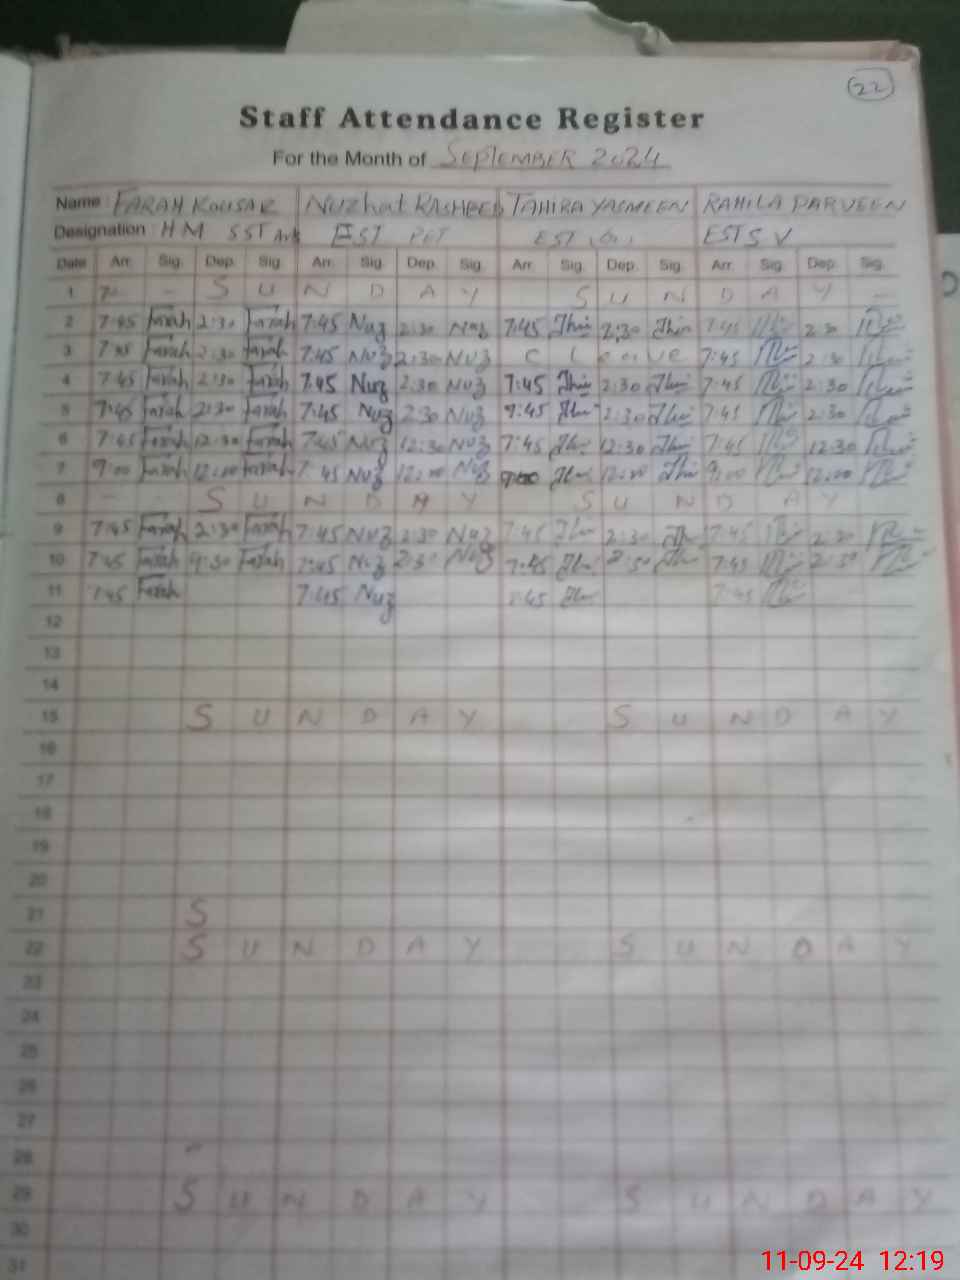 22
Staff Attendance Register
For the Month of SEPTEMBER 2024
Name : FARAH KOUSAR NUZHAT RASHEED TAHIRA YASMEEN RAHILA PARVEEN
Designation : HM SST Arts EST PET EST EST S V
Date Arr. Sig. Dep. Sig. Arr. Sig. Dep. Sig. Arr. Sig. Dep. Sig. Arr. Sig. Dep. Sig.
1 S U N D A Y S U N D A Y
2 7:45 Farah 2:30 Farah 7:45 Nuz 2:30 Nuz 7:45 2:30 7:45 2:30
3 7:45 Farah 2:30 Farah 7:45 Nuz 2:30 Nuz C Leave 7:45 2:30
4 7:45 Farah 2:30 Farah 7:45 Nuz 2:30 Nuz 7:45 2:30 7:45 2:30
5 7:45 Farah 2:30 Farah 7:45 Nuz 2:30 Nuz 7:45 2:30 7:45 2:30
6 7:45 Farah 12:30 Farah 7:45 Nuz 12:30 Nuz 7:45 12:30 7:45 12:30
7 9:00 Farah 12:00 Farah 7:45 Nuz 12:00 Nuz 12:00 9:00 12:00
8 S U N D A Y S U N D A Y
9 7:45 Farah 2:30 Farah 7:45 Nuz 2:30 Nuz 7:45 2:30 7:45 2:30
10 7:45 Farah Farah 7:45 Nuz 2:30 Nuz 7:45 2:30 7:45 2:30
11 7:45 Farah 7:45 Nuz 7:45 7:45
12
13
14
15 S U N D A Y S U N D A Y
16
17
18
19
20
21 S
22 S U N D A Y S U N D A Y
23
24
25
26
27
28
29 S U N D A Y S U N D A Y
30
31
11-09-24 12:19